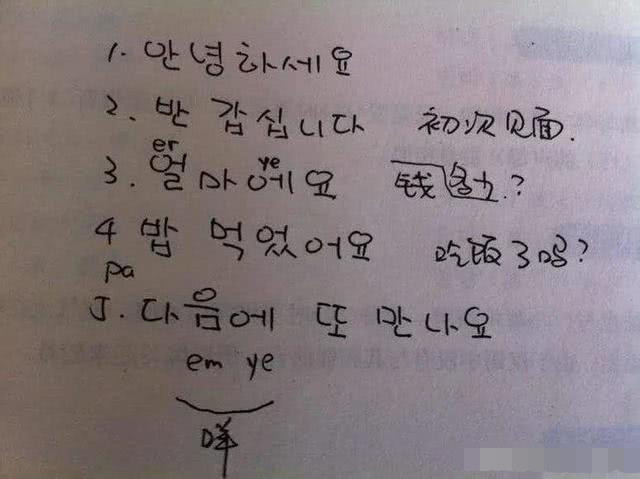 1. 안녕하세요
2. 반갑십니다 初次见面.
er ye
3. 얼마에요 钱?
4 밥 먹었어요 吃饭了吗?
pa
5. 다음에 또 만나요
em ye
咩